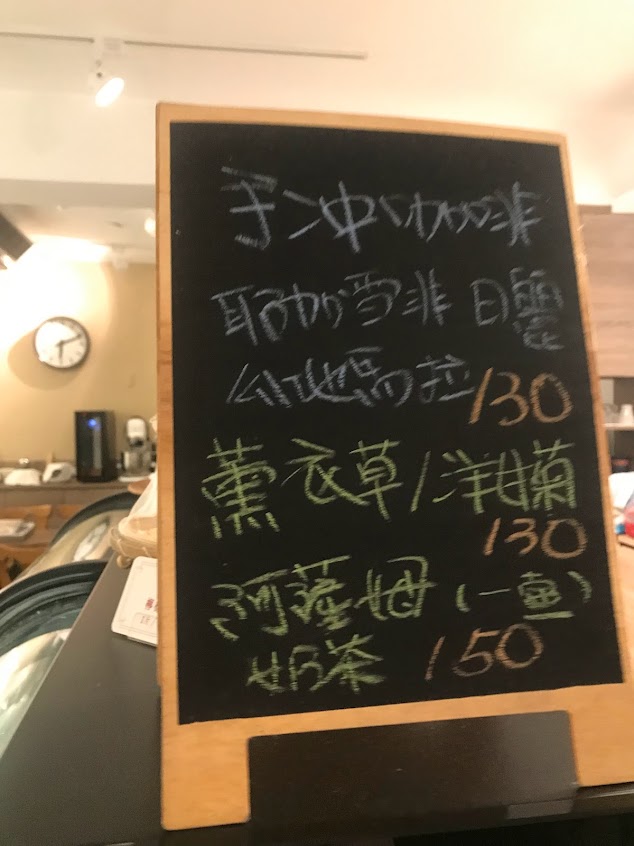 手沖咖啡
耶加雪菲 日曬
瓜地馬拉 130
薰衣草/洋甘菊
130
阿薩姆(一壺)
奶茶 150